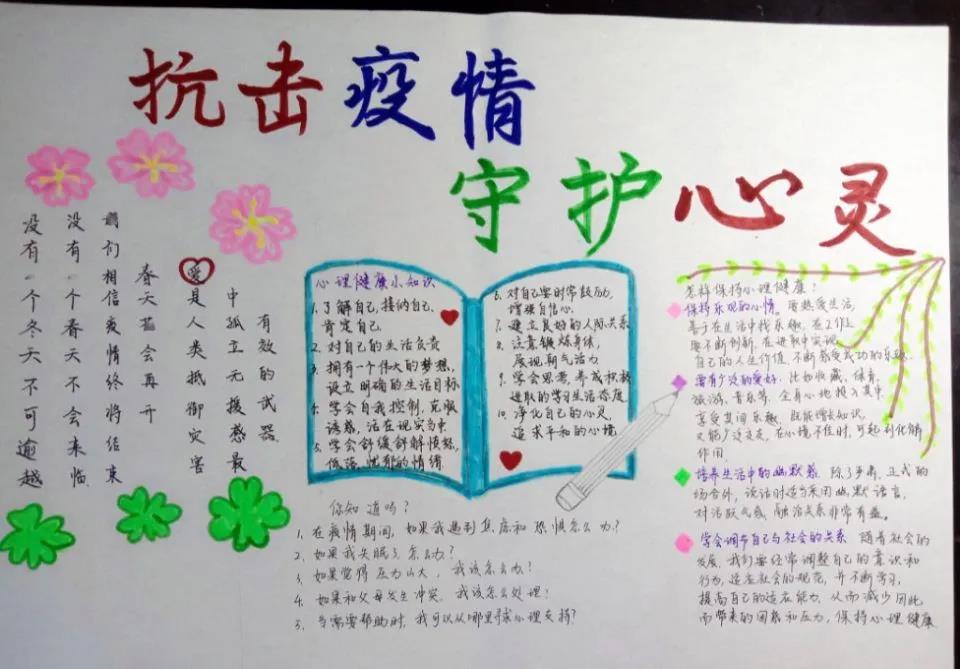 抗击疫情
守护心灵
没有一个冬天不可逾越
没有一个春天不会来临
们相信疫情终将结束
春天花会再开
爱是人类抵御灾害
中孤立无援感最
有效的试器
心理健康小知识
1.了解自己,接纳自己,
肯定自己
2.对自己的生活负责
3.拥有一个伟大的梦想,
设立明确的生活目标
4.学会自我控制,克服
诱惑,活在现实当中
5.学会舒缓舒解愤怒、
低落、忧郁的情绪
6.对自己要时常鼓励,
增强自信心
7.建立良好的人际关系
8.注意锻炼身体,
展现期气活力
9.学会思考,养成积极
进取的学习生活态度
10.净化自己的心灵,
追求平和的心境
你知道吗?
1.在疫情期间,如果我遇到焦虑和恐惧怎么办?
2.如果我失眠了怎么办?
3.如果觉得压力山大,我该怎么办!
4.如果和父母发生冲突,我该怎么处理!
5.当需要帮助时,我可以从哪里寻求心理支持?
怎样保持心理健康!
保持乐观的心情。要热爱生活,
善于在生活中找乐趣,在工作上
要不断创新,在进取中实现
自己的人生价值,不断感受成功的乐趣
要有广泛的爱好。比如收藏,体育,
旅游,音乐等,全身心地投入其中,
享受其间乐趣,既能增长知识,
又能广泛交友,在心境不佳时,可起到化解
作用
培养生活中的幽默感,除了严肃、正式的
场合外,谈话时适当采用幽默语言,
对活跃气氛,融洽关系非常有益。
学会调节自己与社会的关系,随着社会的
发展,我们要经常调整自己的意识和
行为,适应社会的规范,并不断学习,
提高自己的适应能力,从而减少因此
而带来的困惑和压力,保持心理健康